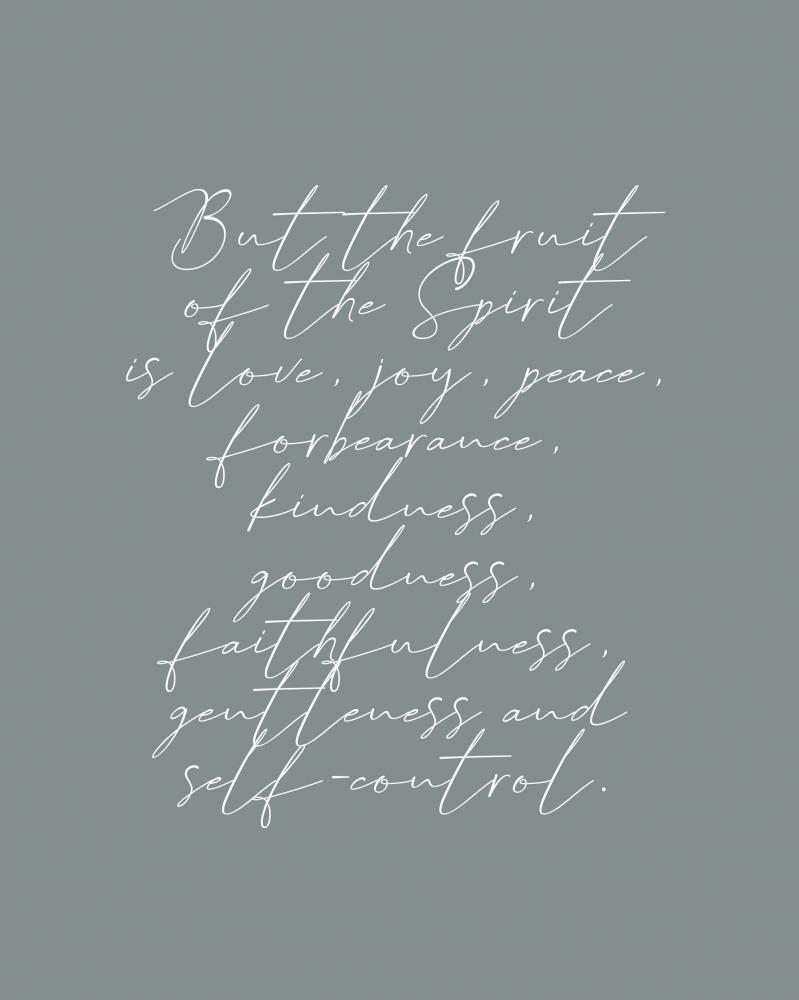 But the fruit
of the Spirit
is love, joy, peace,
forbearance,
kindness,
goodness,
faithfulness,
gentleness and
self-control.